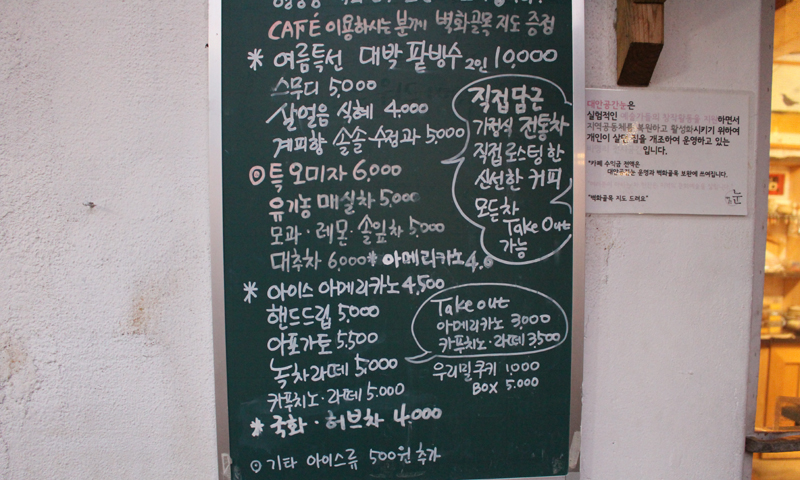 CAFÉ 이용하시는 분께 벽화골목 지도 증정
* 여름특선 대박 팥빙수 2인 10,000
스무디 5,000
살얼음 식혜 4,000
계피향 솔솔 수정과 5,000
⊙ 특 오미자 6,000
유기농 매실차 5,000
모과·레몬·솔잎차 5,000
대추차 6,000 * 아메리카노 4.0
* 아이스 아메리카노 4,500
핸드드립 5,000
아포가토 5,500
녹차라떼 5,000
카푸치노·라떼 5.000
* 국화·허브차 4.000
⊙ 기타 아이스류 500원 추가
직접 담근
가정식 전통차
직접 로스팅한
신선한 커피
모든차
Take Out
가능
Take out
아메리카노 3,000
카푸치노·라떼 3,500
우리밀 쿠키 1,000
BOX 5.000
대안공간눈은
실험적인 예술가들의 창작활동을 지원하면서
지역공동체를 복원하고 활성화시키기 위하여
개인이 살던 집을 개조하여 운영하고 있는
입니다.
*카페 수익금 전액은
대안공간눈 운영과 벽화골목 보완에 쓰여집니다.
"벽화골목 지도 드려요"
눈